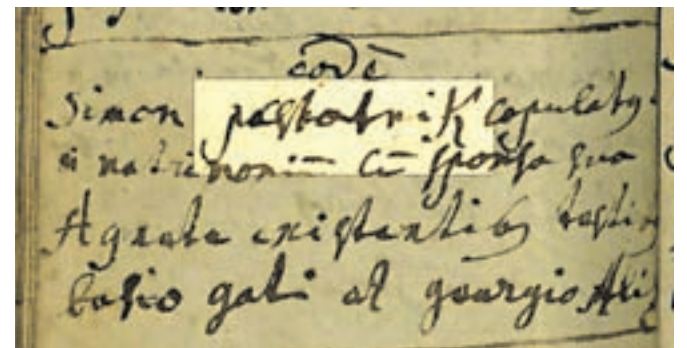 eodē
Simon pastotrik copulatg
in matrimoniū cū sponsa sua
Agneta existentibg testibg
gati et georgio